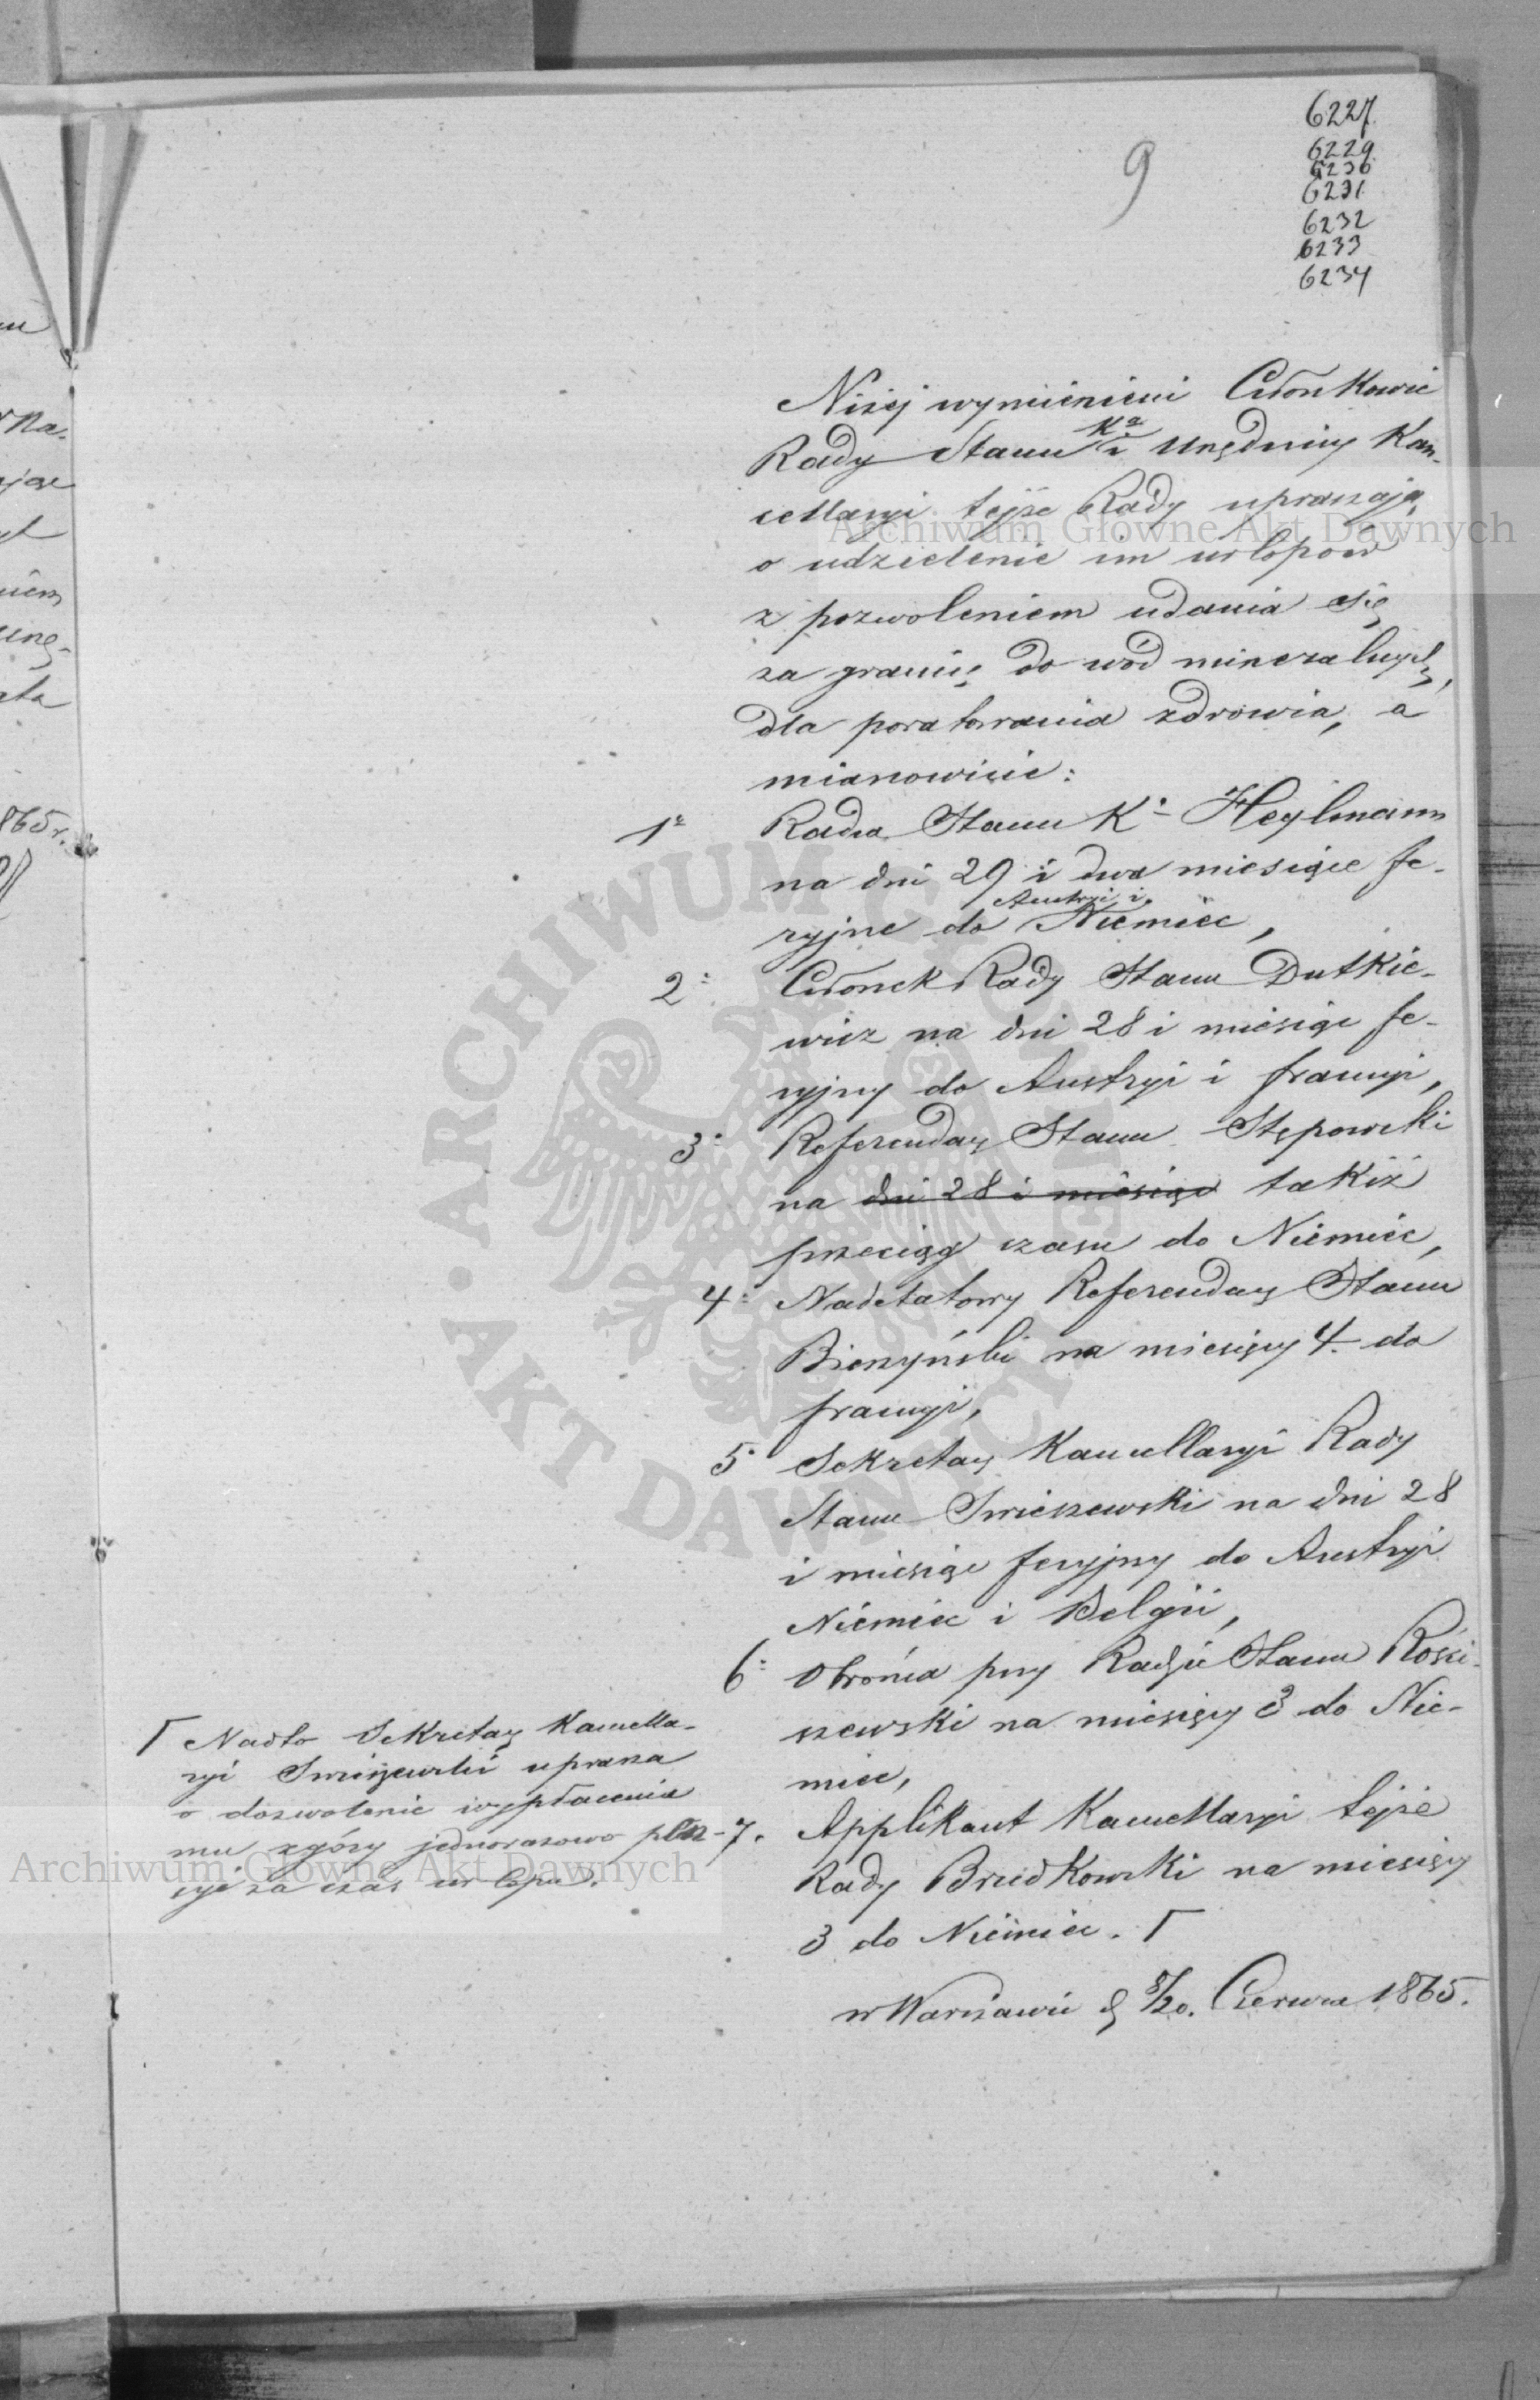 6227.
6229.
6230
6231.
6232
6233
6234
9
Niżej wymienieni Członkowie
Rady Stanu Kr i Urzędnicy Kan-
cellaryi tejże Rady upraszają
o udzielenie im urlopów
z pozwoleniem udania się
za granicę do wód mineralnych,
dla poratowania zdrowia, a
mianowicie:
1. Radca Stanu K. Heylmann
na dni 29 i dwa miesiące fe-
ryjne do Austryi i Niemiec,
2. Członek Rady Stanu Dutkie-
wicz na dni 28 i miesiąc fe-
ryjny do Austryi i francyi,
3. Referendarz Stanu Stępowski
na dni 28 i miesiąc takiż
przeciąg czasu do Niemiec,
4. Nadetatowy Referendarz Stanu
Bieczyński na miesięcy 4. do
francyi,
5. Sekretarz Kancellaryi Rady
Stanu Swieszewski na dni 28
i miesiąc feryjny do Austryi
Niemiec i Belgii,
6. Obrońca przy Radzie Stanu Rości-
szewski na miesięcy 3 do Nie-
miec,
7. Applikant Kancellaryi tejże
Rady Brudkowski na miesięcy
3 do Niemiec. Γ
w Warszawie d 8/20. Czerwca 1865.
Γ Nadto Sekretarz Kancella-
ryi Swieszewski uprasza
o dozwolenie wypłacenia
mu zgóry jednorazowo płac-
cyi za czas urlopu.
865 r.
Archiwum Główne Akt Dawnych
Archiwum Główne Akt Dawnych
ARCHIWUM GŁÓWNE
AKT DAWNYCH